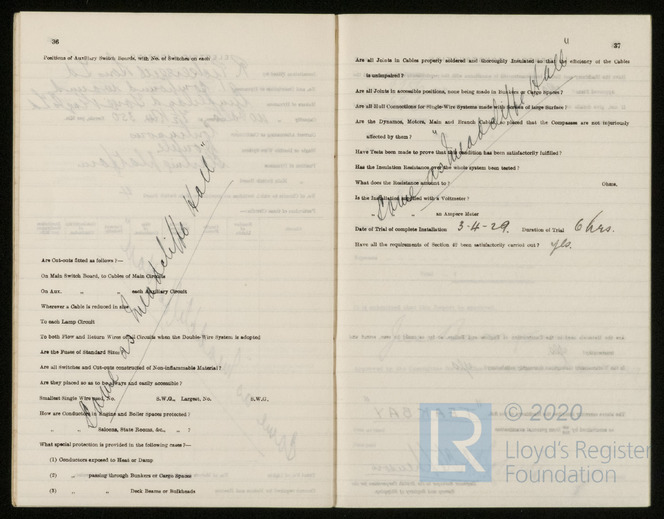 36
Positions of Auxiliary Switch Boards, with No. of Switches on each
Are Cut-outs fitted as follows ?—
On Main Switch Board, to Cables of Main Circuits
On Aux. „ each Auxiliary Circuit
Wherever a Cable is reduced in size
To each Lamp Circuit
To both Flow and Return Wires of all Circuits when the Double-Wire System is adopted
Are the Fuses of Standard Sizes
Are all Switches and Cut-outs constructed of Non-inflammable Material ?
Are they placed so as to be always and easily accessible ?
Smallest Single Wire used, No. S.W.G., Largest, No. S.W.G.
How are Conductors in Engine and Boiler Spaces protected ?
„ „ Saloons, State Rooms, &c., „ ?
What special protection is provided in the following cases ?—
(1) Conductors exposed to Heat or Damp
(2) „ passing through Bunkers or Cargo Spaces
(3) „ „ Deck Beams or Bulkheads
Same as "Meadcliffe Hall"
37
Are all Joints in Cables properly soldered and thoroughly Insulated so that the efficiency of the Cables
is unimpaired ?
Are all Joints in accessible positions, none being made in Bunkers or Cargo Spaces ?
Are all Hull Connections for Single-Wire Systems made with Screws of large Surface ?
Are the Dynamos, Motors, Main and Branch Cables so placed that the Compasses are not injuriously
affected by them ?
Have Tests been made to prove that this condition has been satisfactorily fulfilled ?
Has the Insulation Resistance over the whole system been tested ?
What does the Resistance amount to ? Ohms.
Is the Installation supplied with a Voltmeter ?
„ „ an Ampere Meter
Date of Trial of complete Installation 3-4-29. Duration of Trial 6 hrs.
Have all the requirements of Section 42 been satisfactorily carried out ? yes.
Same as "Meadcliffe Hall"
LR © 2020
Lloyd's Register
Foundation